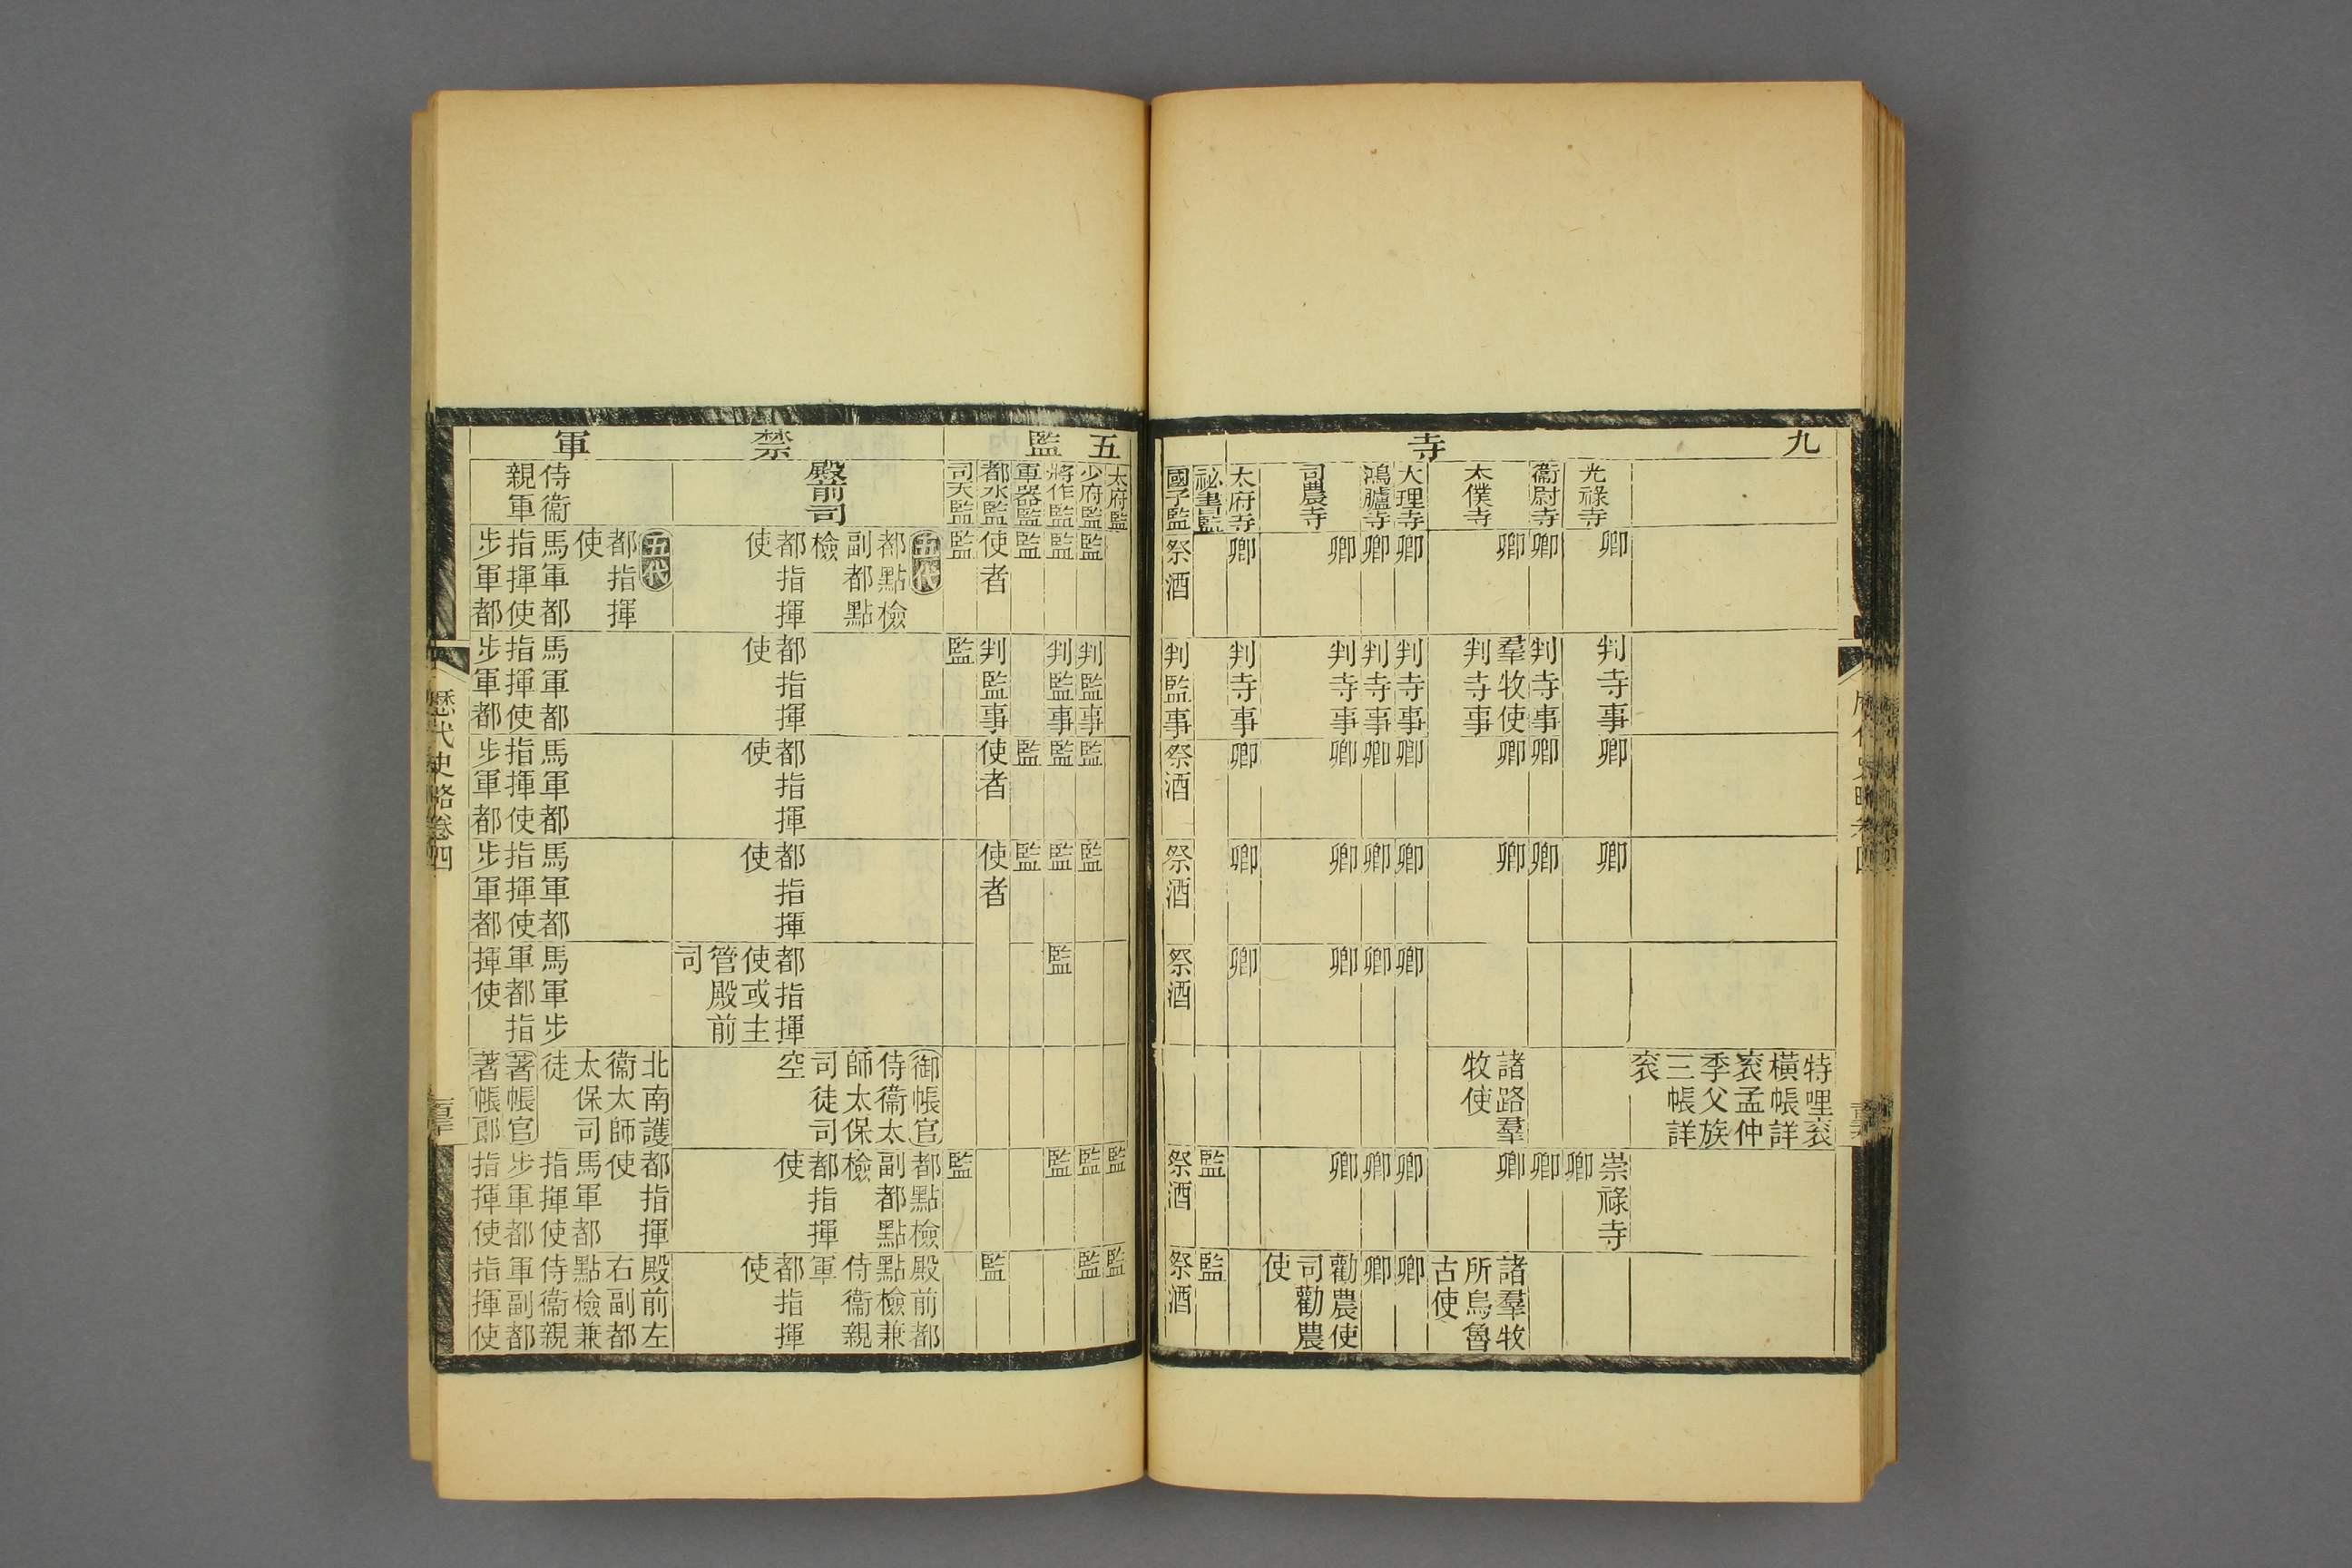 九寺
特哩袞
橫帳詳
袞孟仲
季父族
三帳詳
袞
光祿寺
卿
判寺事
卿
卿
崇祿寺
卿
衞尉寺
卿
判寺事
卿
卿
卿
太僕寺
卿
羣牧使
判寺事
卿
卿
諸路羣
牧使
卿
諸羣牧
所烏魯
古使
大理寺
卿
判寺事
卿
卿
卿
卿
卿
鴻臚寺
卿
判寺事
卿
卿
卿
卿
卿
司農寺
卿
判寺事
卿
卿
卿
卿
勸農使
司勸農
使
太府寺
卿
判寺事
卿
卿
卿
祕書監
監
監
國子監
祭酒
判監事
祭酒
祭酒
祭酒
祭酒
祭酒
五監
太府監
監
監
少府監
監
判監事
監
監
監
監
將作監
監
判監事
監
監
監
監
軍器監
監
監
監
都水監
使者
判監事
使者
使者
監
司天監
監
監
監
禁軍
殿前司
五代
都點檢
副都點
檢
都指揮
使
都指揮
使
都指揮
使
都指揮
使
都指揮
使或主
管殿前
司
御帳官
侍衞太
師太保
司徒司
空
都點檢
副都點
檢
都指揮
使
殿前都
點檢兼
侍衞親
軍
都指揮
使
侍衞
親軍
五代
都指揮
使
馬軍都
指揮使
步軍都
馬軍都
指揮使
步軍都
馬軍都
指揮使
步軍都
馬軍都
指揮使
步軍都
馬軍步
軍都指
揮使
北南護
衞太師
太保司
徒
著帳官
著帳郎
都指揮
使
馬軍都
指揮使
步軍都
指揮使
殿前左
右副都
點檢兼
侍衞親
軍副都
指揮使
歷代史略卷四